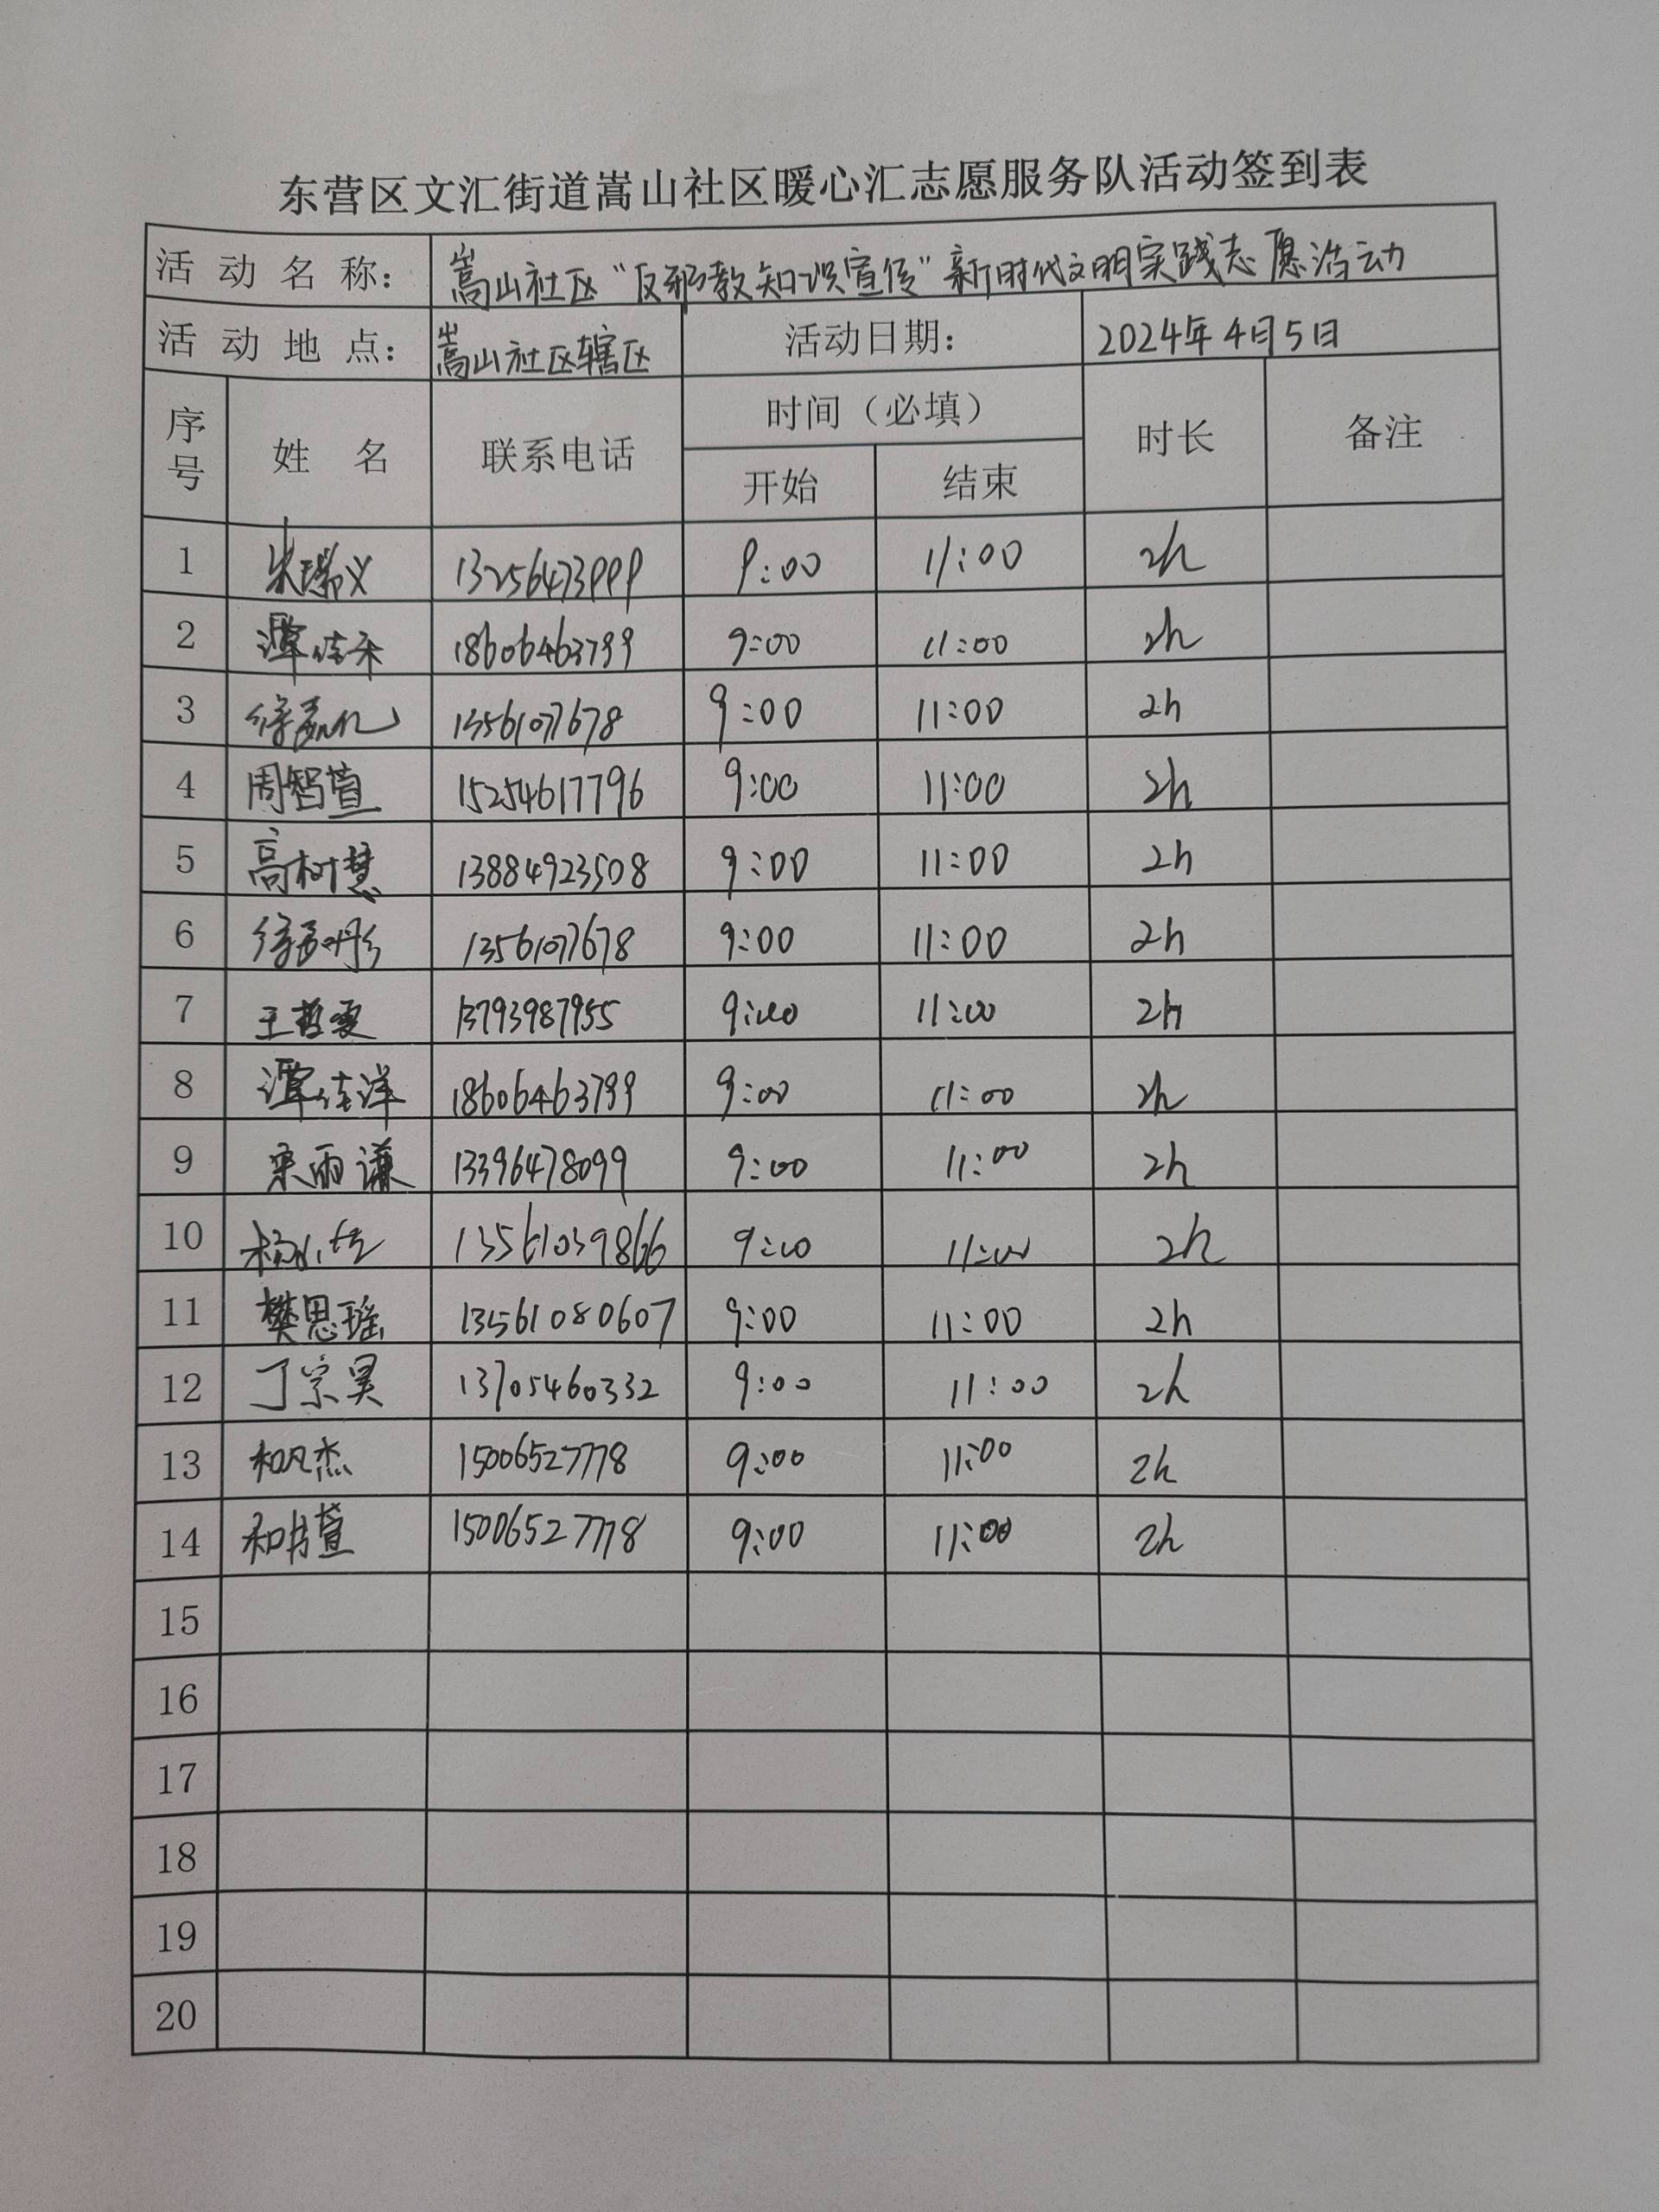 东营区文汇街道嵩山社区暖心汇志愿服务队活动签到表
活动名称： 嵩山社区“反邪教知识宣传”新时代文明实践志愿活动
活动地点： 嵩山社区辖区 活动日期： 2024年4月5日
序号 姓名 联系电话 时间（必填） 时长 备注
开始 结束
1 朱瑞义 13256473999 9:00 11:00 2h
2 谭佳禾 18606463799 9:00 11:00 2h
3 13561077678 9:00 11:00 2h
4 周智萱 15254617796 9:00 11:00 2h
5 高树慧 13884923508 9:00 11:00 2h
6 13561077678 9:00 11:00 2h
7 王哲雯 13793987955 9:00 11:00 2h
8 谭佳洋 18606463799 9:00 11:00 2h
9 宋雨谦 13396478099 9:00 11:00 2h
10 13561039866 9:00 11:00 2h
11 樊思瑶 13561080607 9:00 11:00 2h
12 丁宗昊 13705460332 9:00 11:00 2h
13 和凡杰 15006527778 9:00 11:00 2h
14 和书萱 15006527778 9:00 11:00 2h
15
16
17
18
19
20